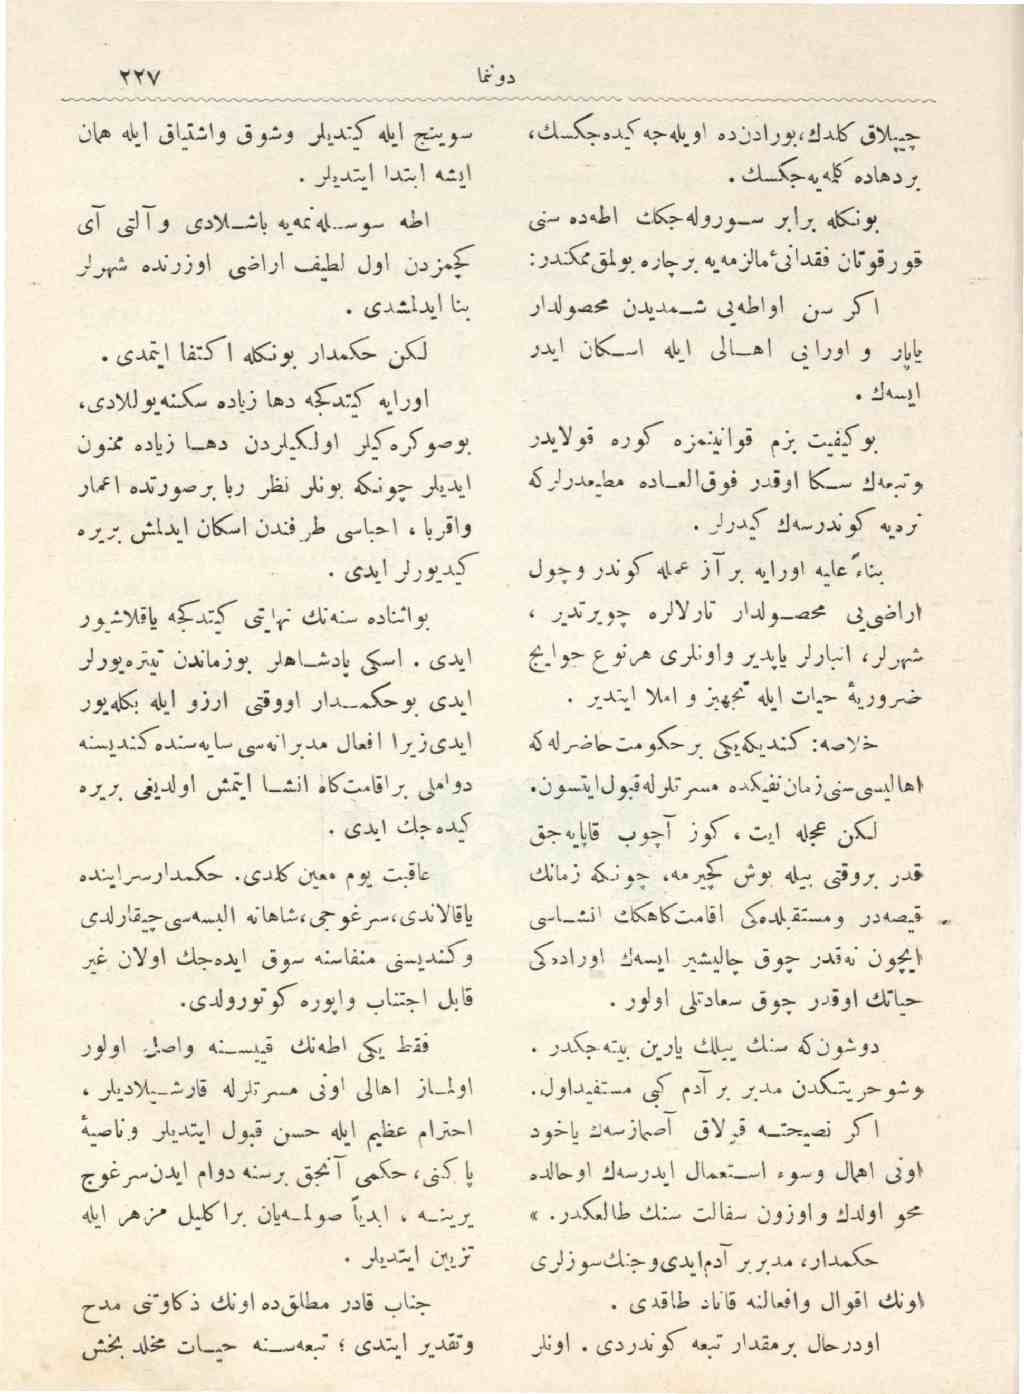 دوننما
٢٢٧
چيپلاق كلدك،بورادن‌ده اويله‌جه كيده‌جكسك،
بردهاده كله‌يه‌جكسك .
بونكله برابر سوروله‌جكك اطه‌ده سنى
قورقوتان فقدانئ مالزمه‌يه برچاره بولمق ممكندر:
اكر سن اواطه‌يى شمديدن محصولدار
ياپار و اورايى اهالى ايله اسكان ايدر
ايسه‌ك .
بو كيفيت بزم قوانينمزه كوره قولايدر
وتبعه‌ك سكا اوقدر فوق‌العاده مطيعدرلركه
نره‌يه كوندرسه‌ك كيدرلر .
بناءً عليه اورايه بر آز عمله كوندر وچول
اراضىيى محصولدار تارلالره چويرتدير ،
شهرلر، انبارلر ياپدير واونلرى هرنوع حوايج
ضروريهٔ حيات ايله تجهيز و املا ايتدير .
خلاصه: كنديكه‌يكى بر حكومت‌حاضرله‌كه
اهاليسى‌سنى‌زمان‌نفيكده مسرتلرله‌قبول‌ايتسون.
لكن عجله ايت ، كوز آچوب قاپايه‌جق
قدر بروقتى بيله بوش كچيرمه، چونكه زمانك
قيصه‌در ومستقبلده‌كى اقامت‌كاهكك انشاسى
ايچون نه‌قدر چوق چاليشير ايسه‌ك اوراده‌كى
حياتك اوقدر چوق سعادتلى اولور .
دوشون‌كه سنك ييلك يارين بيته‌جكدر .
وشوحريتكدن مدبر بر آدم كبى مستفيداول.
اكر نصيحتمه قولاق آصمازسه‌ك ياخود
اونى اهمال وسوء استعمال ايدرسه‌ك اوحالده
محو اولدك واوزون سفالت سنك طالعكدر. »
حكمدار، مدبربر آدم‌ايدى‌وجنك‌سوزلرى
اونك اقوال وافعالنه قاناد طاقدى .
اودرحال برمقدار تبعه كوندردى . اونلر
سوينج ايله كينديلر وشوق واشتياق ايله همان
ايشه ابتدا ايتديلر .
اطه سوسله‌نمه‌يه باشلادى وآلتى آى
كچمزدن اول لطيف اراضى اوزرنده شهرلر
بنا ايدلمشدى .
لكن حكمدار بونكله اكتفا ايتمدى .
اورايه كيتدكجه دها زياده سكنه‌يوللادى،
بوصوكره‌كيلر اولكيلردن دها زياده ممنون
ايديلر چونكه بونلر نظر ربا برصورتده اعمار
واقربا ، احباسى طرفندن اسكان ايدلمش بريره
كيديورلر ايدى .
بواثناده سنه‌نك نهايتى كيتدكجه ياقلاشيور
ايدى . اسكى پادشاهلر بوزماندن تيتره‌يورلر
ايدى بوحكمدار اووقتى ارزو ايله بكله‌يور
ايدى‌زيرا افعال مدبرانه‌سى سايه‌سنده‌كنديسنه
دواملى براقامت‌كاه انشا ايتمش اولديغى بريره
كيده‌جك ايدى .
عاقبت يوم معين كلدى. حكمدارسراينده
ياقالاندى،سرغوجى،شاهانه البسه‌سى‌چيقارلدى
وكنديسنى منفاسنه سوق ايده‌جك اولان غير
قابل اجتناب واپوره كوتورولدى.
فقط يكى اطه‌نك قييسنه واصل اولور
اولماز اهالى اونى مسرتلرله قارشيلاديلر ،
احترام عظيم ايله حسن قبول ايتديلر وناصيهٔ
پاكنى، حكمى آنجق برسنه دوام ايدن‌سرغوج
يرينه ، ابدياً صولميان براكليل مزهر ايله
تزيين ايتديلر .
جناب قادر مطلق‌ده اونك ذكاوتنى مدح
وتقدير ايتدى ؛ تبعه‌سنه حيات مخلد بخش